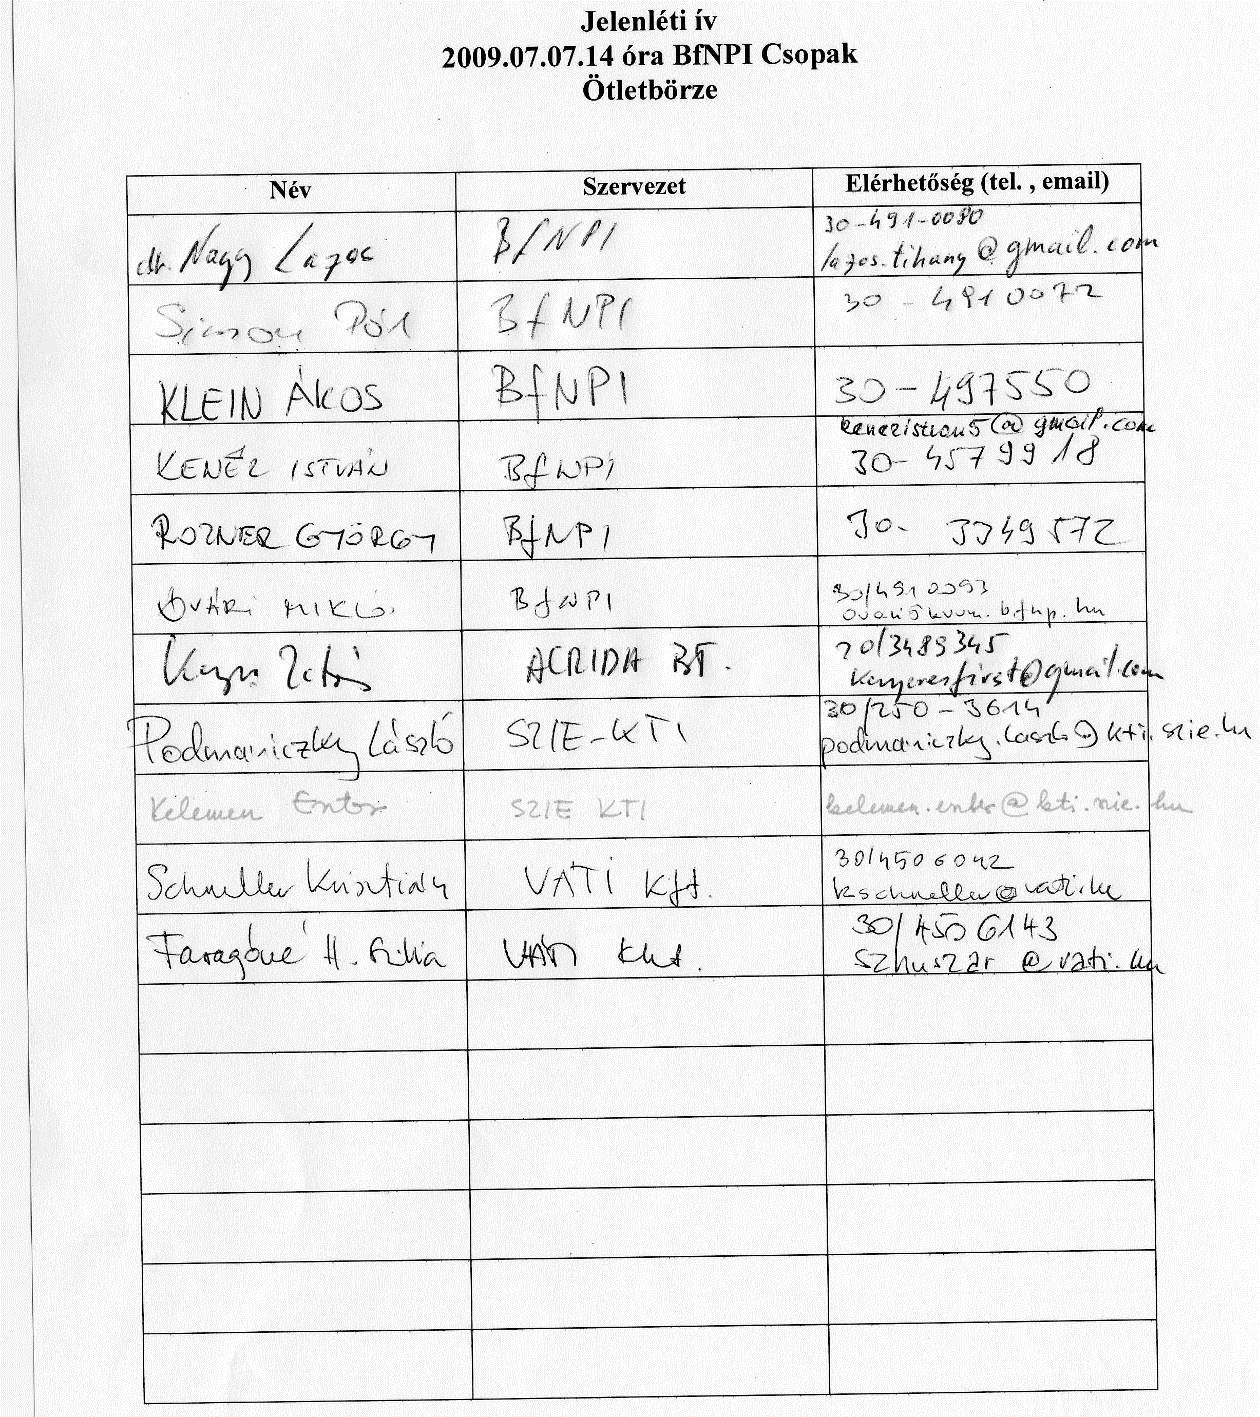 Jelenléti ív
2009.07.07.14 óra BfNPI Csopak
Ötletbörze
Név Szervezet Elérhetőség (tel. , email)
dr. Nagy Lajos BfNPI 30-491-0080
lajos.tihany@gmail.com
Simon Pál BfNPI 30-4910072
KLEIN ÁKOS BfNPI 30-497550
kenezistvan5@gmail.com
KENÉZ ISTVÁN BfNPI 30-4579918
ROZNER GYÖRGY BfNPI 30-3349572
ÓVÁRI MIKLÓS BfNPI 30/4910093
bfnp.hu
ACRIDA BT. 20/3489345
kenyeresfirst@gmail.com
Podmaniczky László SZIE-KTI 30/250-3614
podmaniczky.laszlo@kti.szie.hu
Kelemen Eszter SZIE KTI kelemen.eszter@kti.szie.hu
Schneller Krisztián VÁTI Kft. 30/4506042
kschneller@vati.hu
Faragóné H. Szilvia VÁTI Kht. 30/4506143
szhuszar@vati.hu